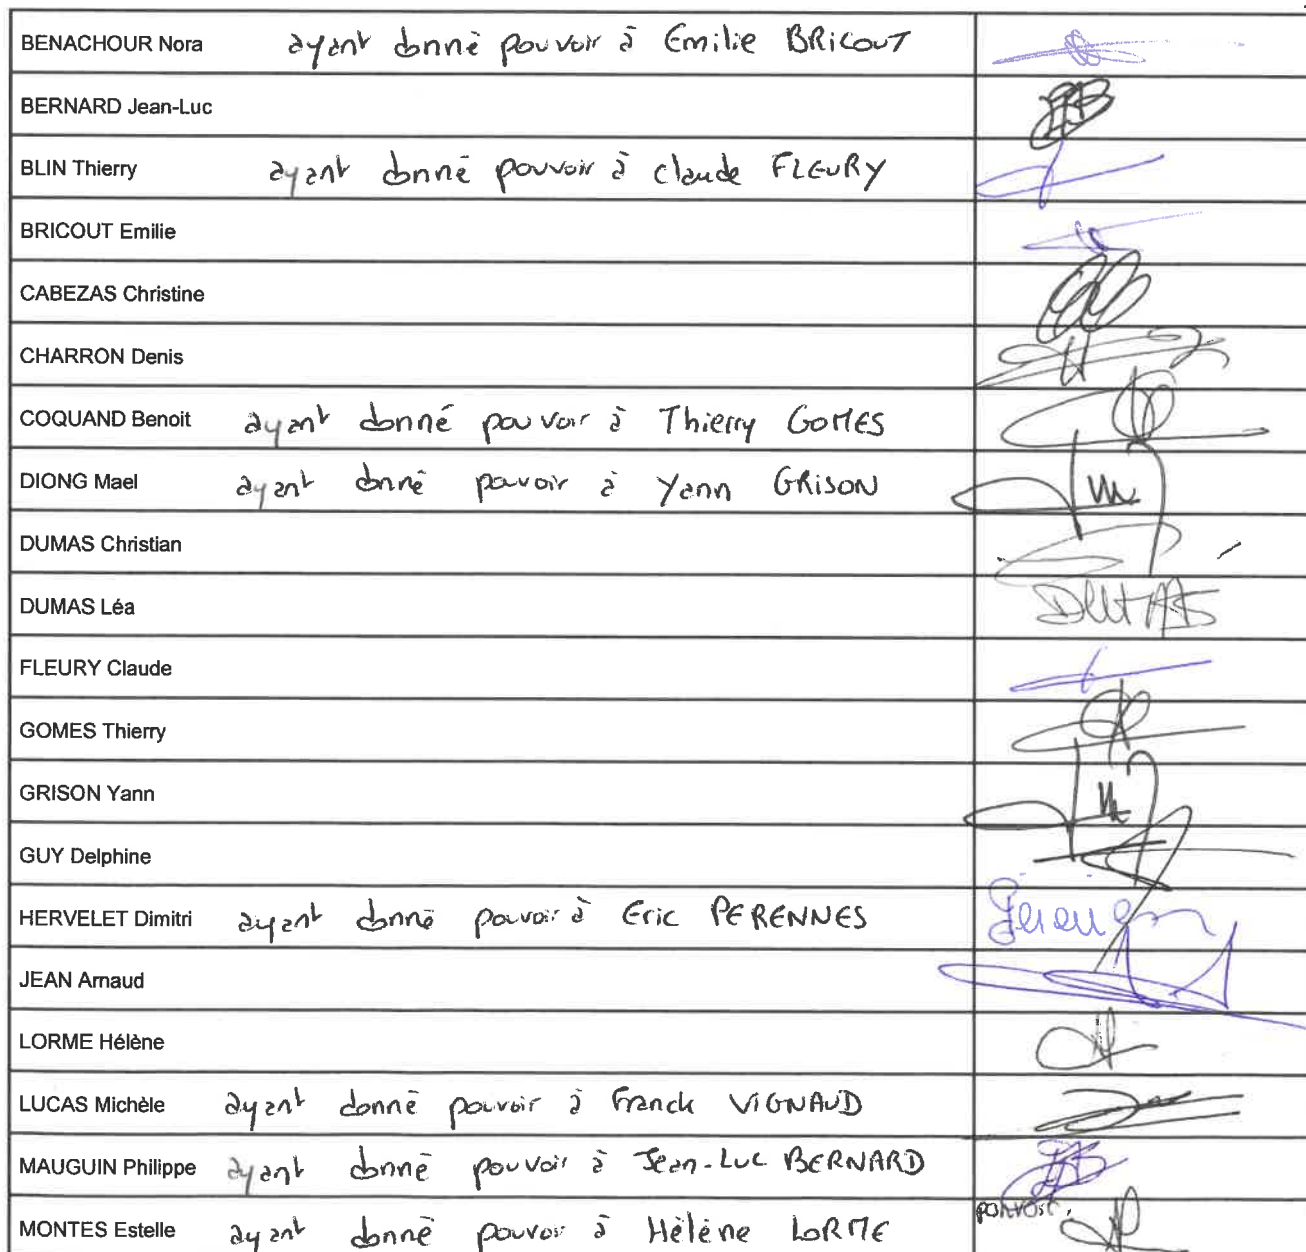 BENACHOUR Nora ayant donné pouvoir à Emilie BRICOUT
BERNARD Jean-Luc
BLIN Thierry ayant donné pouvoir à Claude FLEURY
BRICOUT Emilie
CABEZAS Christine
CHARRON Denis
COQUAND Benoit ayant donné pouvoir à Thierry GOMES
DIONG Mael ayant donné pouvoir à Yann GRISON
DUMAS Christian
DUMAS Léa DUMAS
FLEURY Claude
GOMES Thierry
GRISON Yann
GUY Delphine
HERVELET Dimitri ayant donné pouvoir à Eric PERENNES
JEAN Arnaud
LORME Hélène
LUCAS Michèle ayant donné pouvoir à Franck VIGNAUD
MAUGUIN Philippe ayant donné pouvoir à Jean-Luc BERNARD
MONTES Estelle ayant donné pouvoir à Hélène LORME pouvoir.